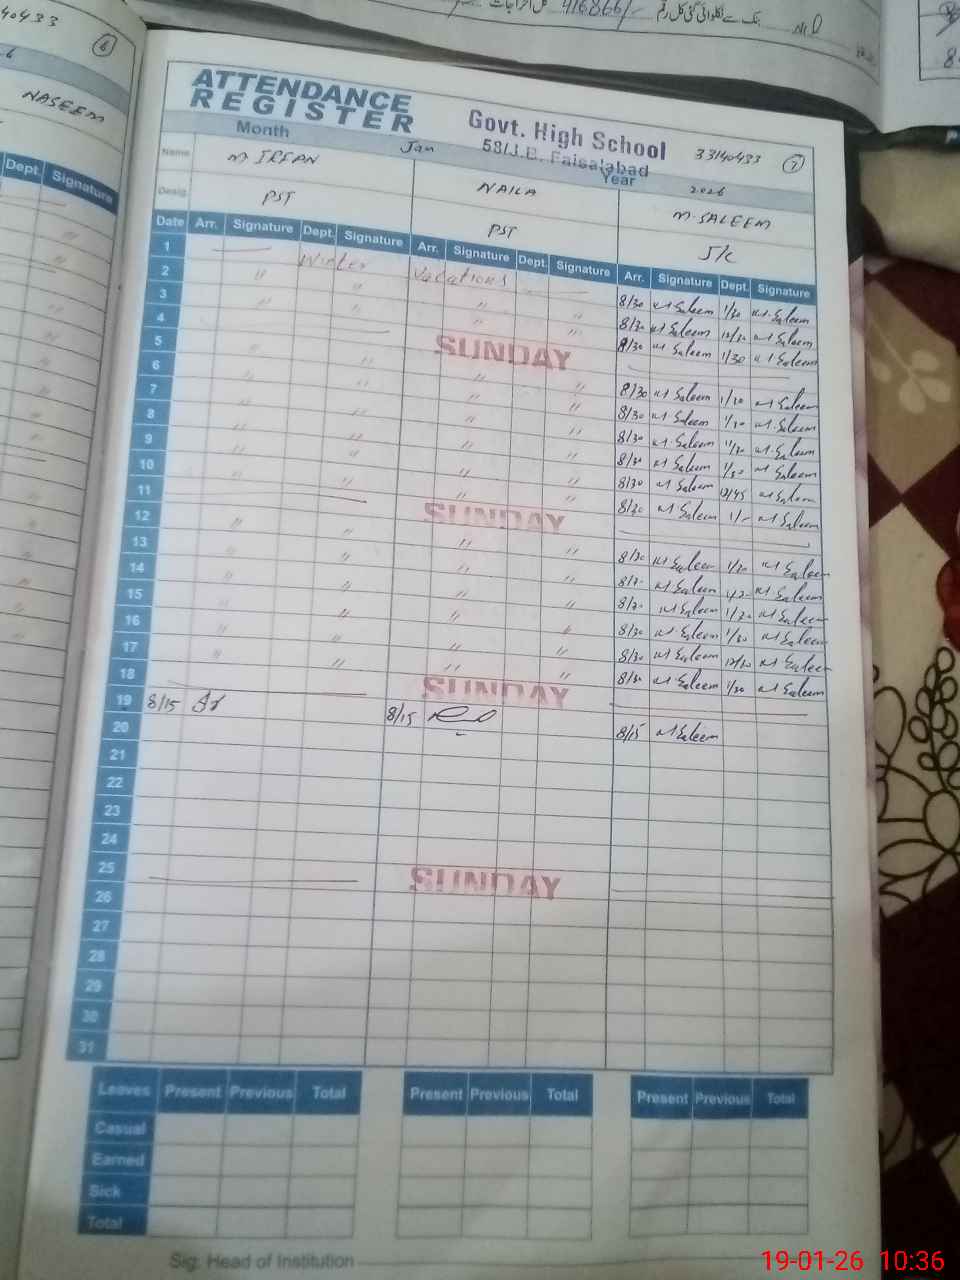 40433
6
NASEEM
Dept. Signature
416866/-
ATTENDANCE
REGISTER
Govt. High School
58/J.B. Faisalabad
33140433
7
Month Jan Year 2026
Name M IRFAN NAILA M. SALEEM
Desig. PST PST J/C
Date Arr. Signature Dept. Signature Arr. Signature Dept. Signature Arr. Signature Dept. Signature
1 Winter Vacations 8/30 M. Saleem 1/30 M. Saleem
2 " " " " 8/30 M. Saleem 12/30 M. Saleem
3 " " " " 8/30 M. Saleem 1/30 M. Saleem
4 SUNDAY
5 " " " " 8/30 M. Saleem 1/30 M. Saleem
6 " " " " 8/30 M. Saleem 1/30 M. Saleem
7 " " " " 8/30 M. Saleem M. Saleem
8 " " " " 8/30 M. Saleem 1/30 M. Saleem
9 " " " " 8/30 M. Saleem 12/45 M. Saleem
10 " " " " 8/30 M. Saleem 1/- M. Saleem
11 SUNDAY
12 " " " " 8/30 M. Saleem 1/30 M. Saleem
13 " " " " M. Saleem M. Saleem
14 " " " " M. Saleem 1/30 M. Saleem
15 " " " " 8/30 M. Saleem 1/30 M. Saleem
16 " " " " 8/30 M. Saleem 12/30 M. Saleem
17 " " " " 8/30 M. Saleem 1/30 M. Saleem
18 SUNDAY
19 8/15 8/15 8/15 M. Saleem
20
21
22
23
24
25 SUNDAY
26
27
28
29
30
31
Leaves Present Previous Total Present Previous Total Present Previous Total
Casual
Earned
Sick
Total
Sig: Head of Institution
19-01-26 10:36